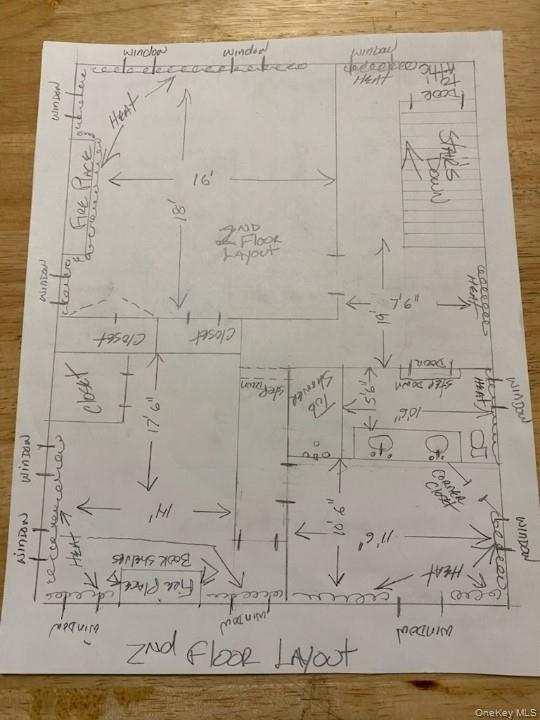 WINDOW
WINDOW
WINDOW
HEAT
DOOR
TO
ATTIC
WINDOW
HEAT
FIRE PLACE
STAIRS
DOWN
19'
18'
2ND
FLOOR
LAYOUT
WINDOW
HEAT
CLOSET
CLOSET
STEP DOWN
TUB
SHOWER
DOOR
STEP DOWN
HEAT
WINDOW
CLOSET
17'6"
5'9"
10'6"
CORNER
CLOSET
WINDOW
14'
10'9"
11'6"
WINDOW
WINDOW
HEAT
BOOK SHELVES
FIRE PLACE
HEAT
WINDOW
WINDOW
WINDOW
WINDOW
2nd FLOOR LAYOUT
OneKey MLS